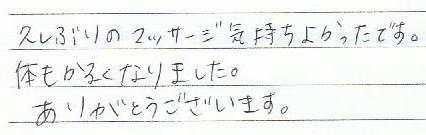 久しぶりのマッサージ気持ちよかったです。
体もかるくなりました。
ありがとうございます。